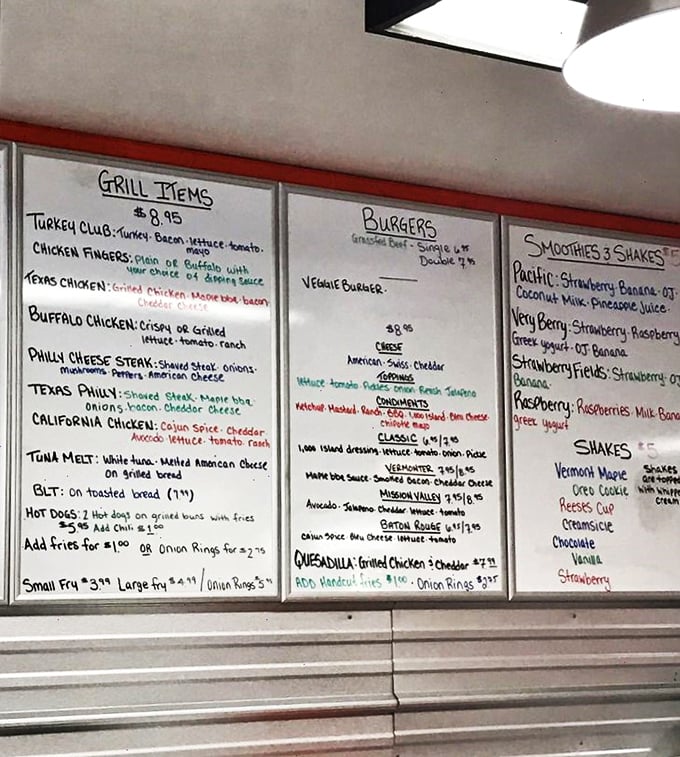 GRILL ITEMS
$8.95
TURKEY CLUB: Turkey. Bacon. lettuce. tomato.
mayo
CHICKEN FINGERS: Plain or Buffalo with
your choice of dipping sauce
TEXAS CHICKEN: Grilled Chicken. Maple bbq. bacon
Cheddar Cheese
BUFFALO CHICKEN: crispy OR Grilled
lettuce. tomato. ranch
PHILLY CHEESE STEAK: Shaved Steak. onions.
mushrooms. Peppers. American Cheese
TEXAS PHILLY: Shaved Steak. Maple bbq
onions. bacon. Cheddar Cheese
CALIFORNIA CHICKEN: Cajun Spice. Cheddar
Avocado. lettuce. tomato. ranch
TUNA MELT: White tuna. Melted American Cheese
on grilled bread
BLT: on toasted bread (7.99)
HOT DOGS: 2 Hot dogs on grilled buns with fries
$5.95 Add Chili $1.00
Add fries for $1.00 OR Onion Rings for $2.75
Small Fry $3.99 Large fry $4.99 / Onion Rings $5
BURGERS
Grassfed Beef - Single 6.95
Double 7.95
VEGGIE BURGER.
$8.95
CHEESE
American. Swiss. Cheddar
TOPPINGS
lettuce. tomato. Pickles. onion. Relish. Jalapeno
CONDIMENTS
Ketchup. Mustard. Ranch. BBQ. 1,000 Island. Bleu Cheese.
chipotle mayo
CLASSIC 6.95/7.95
1,000 Island dressing. lettuce. tomato. Onion. Pickle
VERMONTER 7.95/8.95
Maple bbq Sauce. Smoked Bacon. Cheddar Cheese
MISSION VALLEY 7.95/8.95
Avocado. Jalapeno. Cheddar. lettuce. tomato
BATON ROUGE 6.95/7.95
Cajun Spice. Bleu Cheese. lettuce. tomato
QUESADILLA: Grilled Chicken & Cheddar $7.99
ADD Handcut fries $1.00. Onion Rings $2.75
SMOOTHIES & SHAKES $5
Pacific: Strawberry. Banana. OJ.
Coconut Milk. Pineapple Juice.
Very Berry: Strawberry. Raspberry
Greek yogurt. OJ. Banana
Strawberry Fields: Strawberry. OJ
Banana.
Raspberry: Raspberries. Milk. Bana
greek yogurt
SHAKES $5
Vermont Maple
Oreo Cookie
Reeses Cup
Creamsicle
Chocolate
Vanilla
Strawberry
Shakes
are topped
with whipped
cream